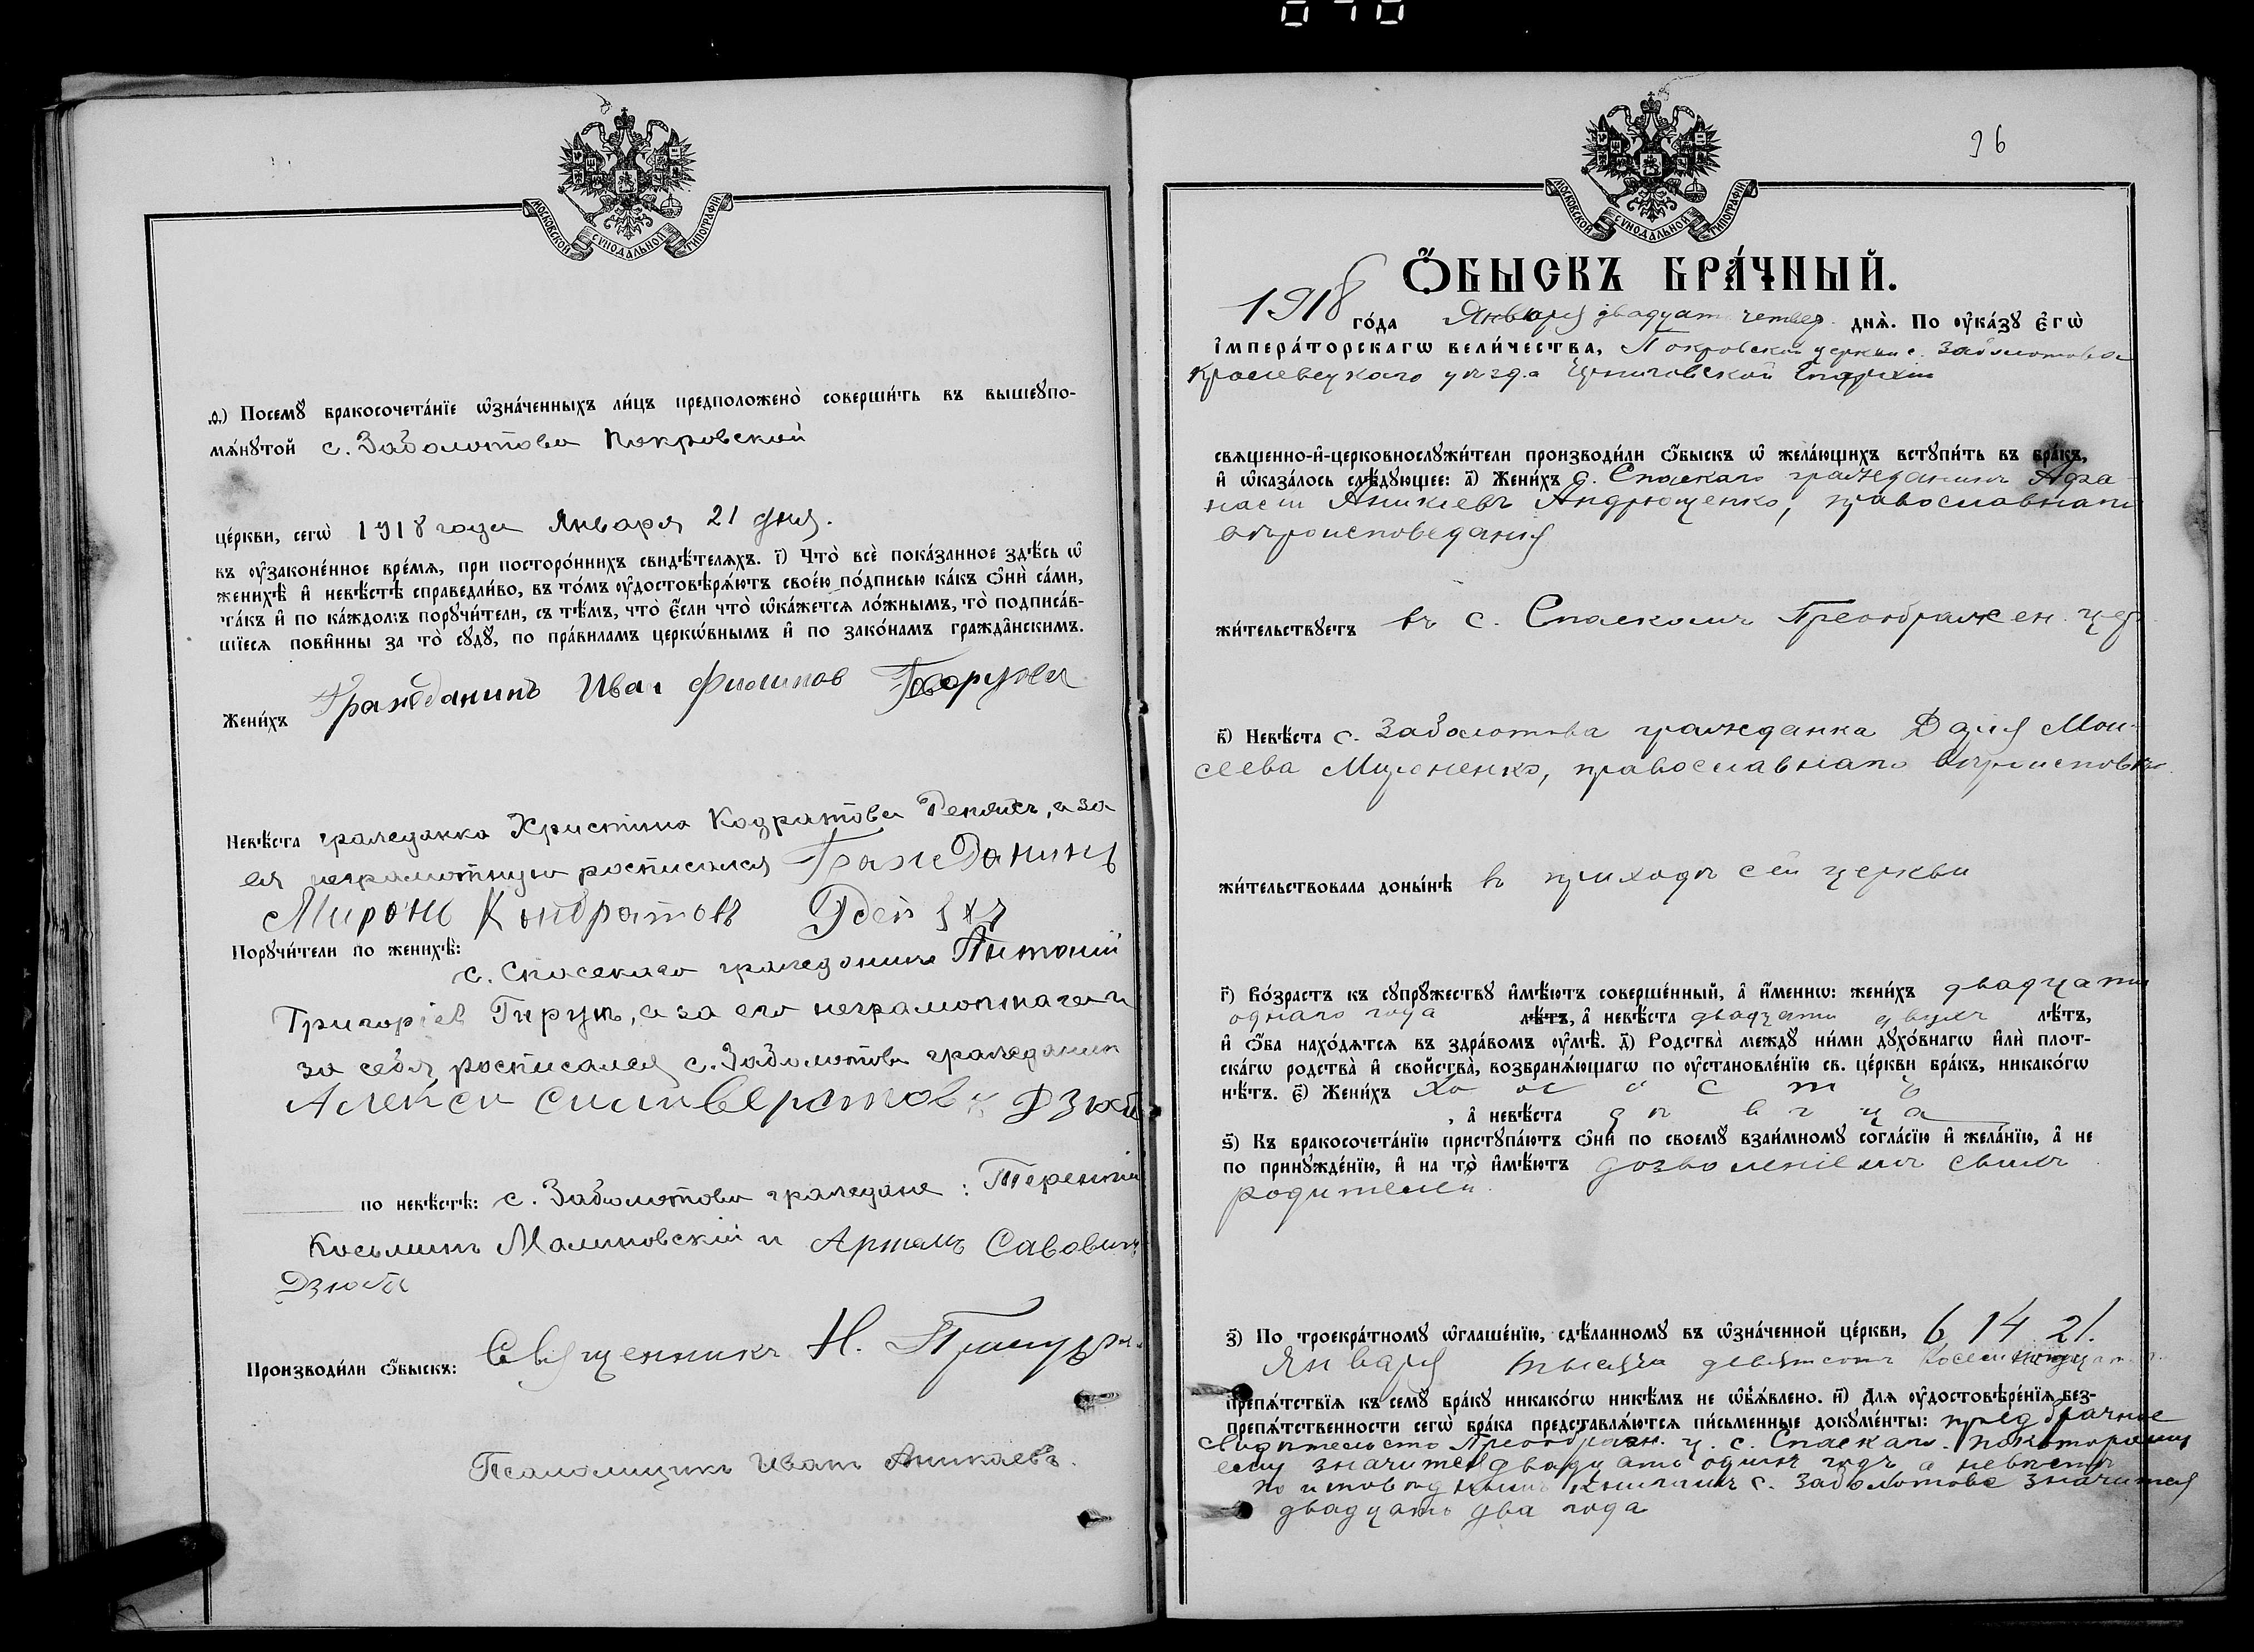 МОСКОВСКОЙ СУНОДАЛЬНОЙ ТИПОГРАФІИ
ѳ҃.) Посемꙋ̀ бракосочета́нїе ѡ҆зна́ченныхъ ли́цъ предположено̀ соверши́ть въ вышеꙋпо-
мѧ́нꙋтой с. Заболотова Покровской
це́ркви, сегѡ̀ 1918 года Января 21 дня.
въ ᲂу҆законе́нное вре́мѧ, при посторо́ннихъ свидѣ́телѧхъ. і҃) Что̀ всѐ пока́занное здѣ́сь ѡ҆
женихѣ̀ и҆ невѣ́стѣ справедли́во, въ то́мъ ᲂу҆достовѣрѧ́ютъ свое́ю по́дписью ка́къ ѻ҆нѝ са́ми,
та́къ и҆ по ка́ждомъ порꙋчи́тели, съ тѣ́мъ, что̀ є҆́сли что̀ ѡ҆ка́жетсѧ ло́жнымъ, то̀ подписа́в-
шїесѧ пови́нны за то̀ сꙋдꙋ̀, по пра́виламъ церкѡ́внымъ и҆ по зако́намъ гражда́нскимъ.
Жени́хъ Гражданинъ Иван Филипов
Невѣ́ста гражданка Христина Кодратова а за
ея неграмотную росписался Гражданинъ
Миронъ Кондратовъ
Порꙋчи́тели по женихѣ̀:
с. Спаскаго гражданинъ Антоний
Григоріев а за его неграмотнаго и
за себя росписался с. Заболотова гражданин
Алексей Силиверстовъ Дзюб
по невѣ́стѣ: с. Заболотова граждане: Терентий
Косьминъ Малиновскій и Артемъ Савовичъ
Дзюба
Производи́ли ѻ҆́быскъ: Священникъ Н.
Псаломщикъ Иванъ Аникаевъ.
МОСКОВСКОЙ СУНОДАЛЬНОЙ ТИПОГРАФІИ
36
Ѻ҆́БЫСКЪ БРА́ЧНЫЙ.
1918 го́да Января двадцат четвер. днѧ̀. По ᲂу҆ка́зꙋ є҆гѡ̀
і҆мпера́торскагѡ вели́чества, Покровской церкви с. Заболотова
Кролевецкаго уезда Черниговской Епархіи
свѧще́нно-и҆-церковнослꙋжи́тели производи́ли ѻ҆́быскъ ѡ҆ жела́ющихъ встꙋпи́ть въ бра́къ,
и҆ ѡ҆каза́лось слѣ́дꙋющее: а҃) Жени́хъ с. Спаскаго гражданинъ Афа-
насій Аникіевъ Андрющенко, православнаго
вѣроисповеданія
жи́тельствꙋетъ въ с. Спаскомъ Преображен. цер.
в҃) Невѣ́ста с. Заболотова гражданка Дарія Мои-
сеева Мироненко, православнаго вѣроисповѣ.
жи́тельствовала доны́нѣ въ приходѣ сей церкви
г҃) Во́зрастъ къ сꙋпрꙋ́жествꙋ и҆мѣ́ютъ соверше́нный, а҆ и҆́меннѡ: жени́хъ двадцати
однаго года лѣ́тъ, а҆ невѣ́ста двадцати двухъ лѣ́тъ,
и҆ ѻ҆́ба нахо́дѧтсѧ въ здра́вомъ ᲂу҆мѣ̀. д҃) Родства̀ между ни́ми дꙋхо́внагѡ и҆лѝ плот-
ска́гѡ родства̀ и҆ сво́йства̀, возбранѧ́ющагѡ по ᲂу҆становле́нїю св. це́ркви бра́къ, никако́гѡ
нѣ́тъ. є҃) Жени́хъ холостъ
, а҆ невѣ́ста дѣвица
ѕ҃) Къ бракосочета́нїю пристꙋпа́ютъ ѻ҆нѝ по своемꙋ̀ взаи́мномꙋ согла́сїю и҆ жела́нїю, а҆ не
по принꙋжде́нїю, и҆ на то̀ и҆мѣ́ютъ дозволеніемъ своихъ
родителей.
з҃) По троекра́тномꙋ ѡ҆глаше́нїю, сдѣ́ланномꙋ въ ѡ҆зна́ченной це́ркви, 6 14 21.
Января тысяча девятсотъ восемнадцат
препѧ́тствїѧ къ семꙋ̀ бра́кꙋ никако́гѡ никѣ́мъ не ѡ҆б̾ѧ́влено. и҃) Длѧ ᲂу҆достовѣре́нїѧ без-
препѧ́тственности сегѡ̀ бра́ка представлѧ́ютсѧ пи́сьменные докꙋме́нты: предбрачное
свидетельсто Преображен. ц. с. Спаскаго. по которому
ему значится двадцать одинъ годъ а невѣстѣ
по исповѣднымъ книгамъ с. Заболотова значится
двадцать два года